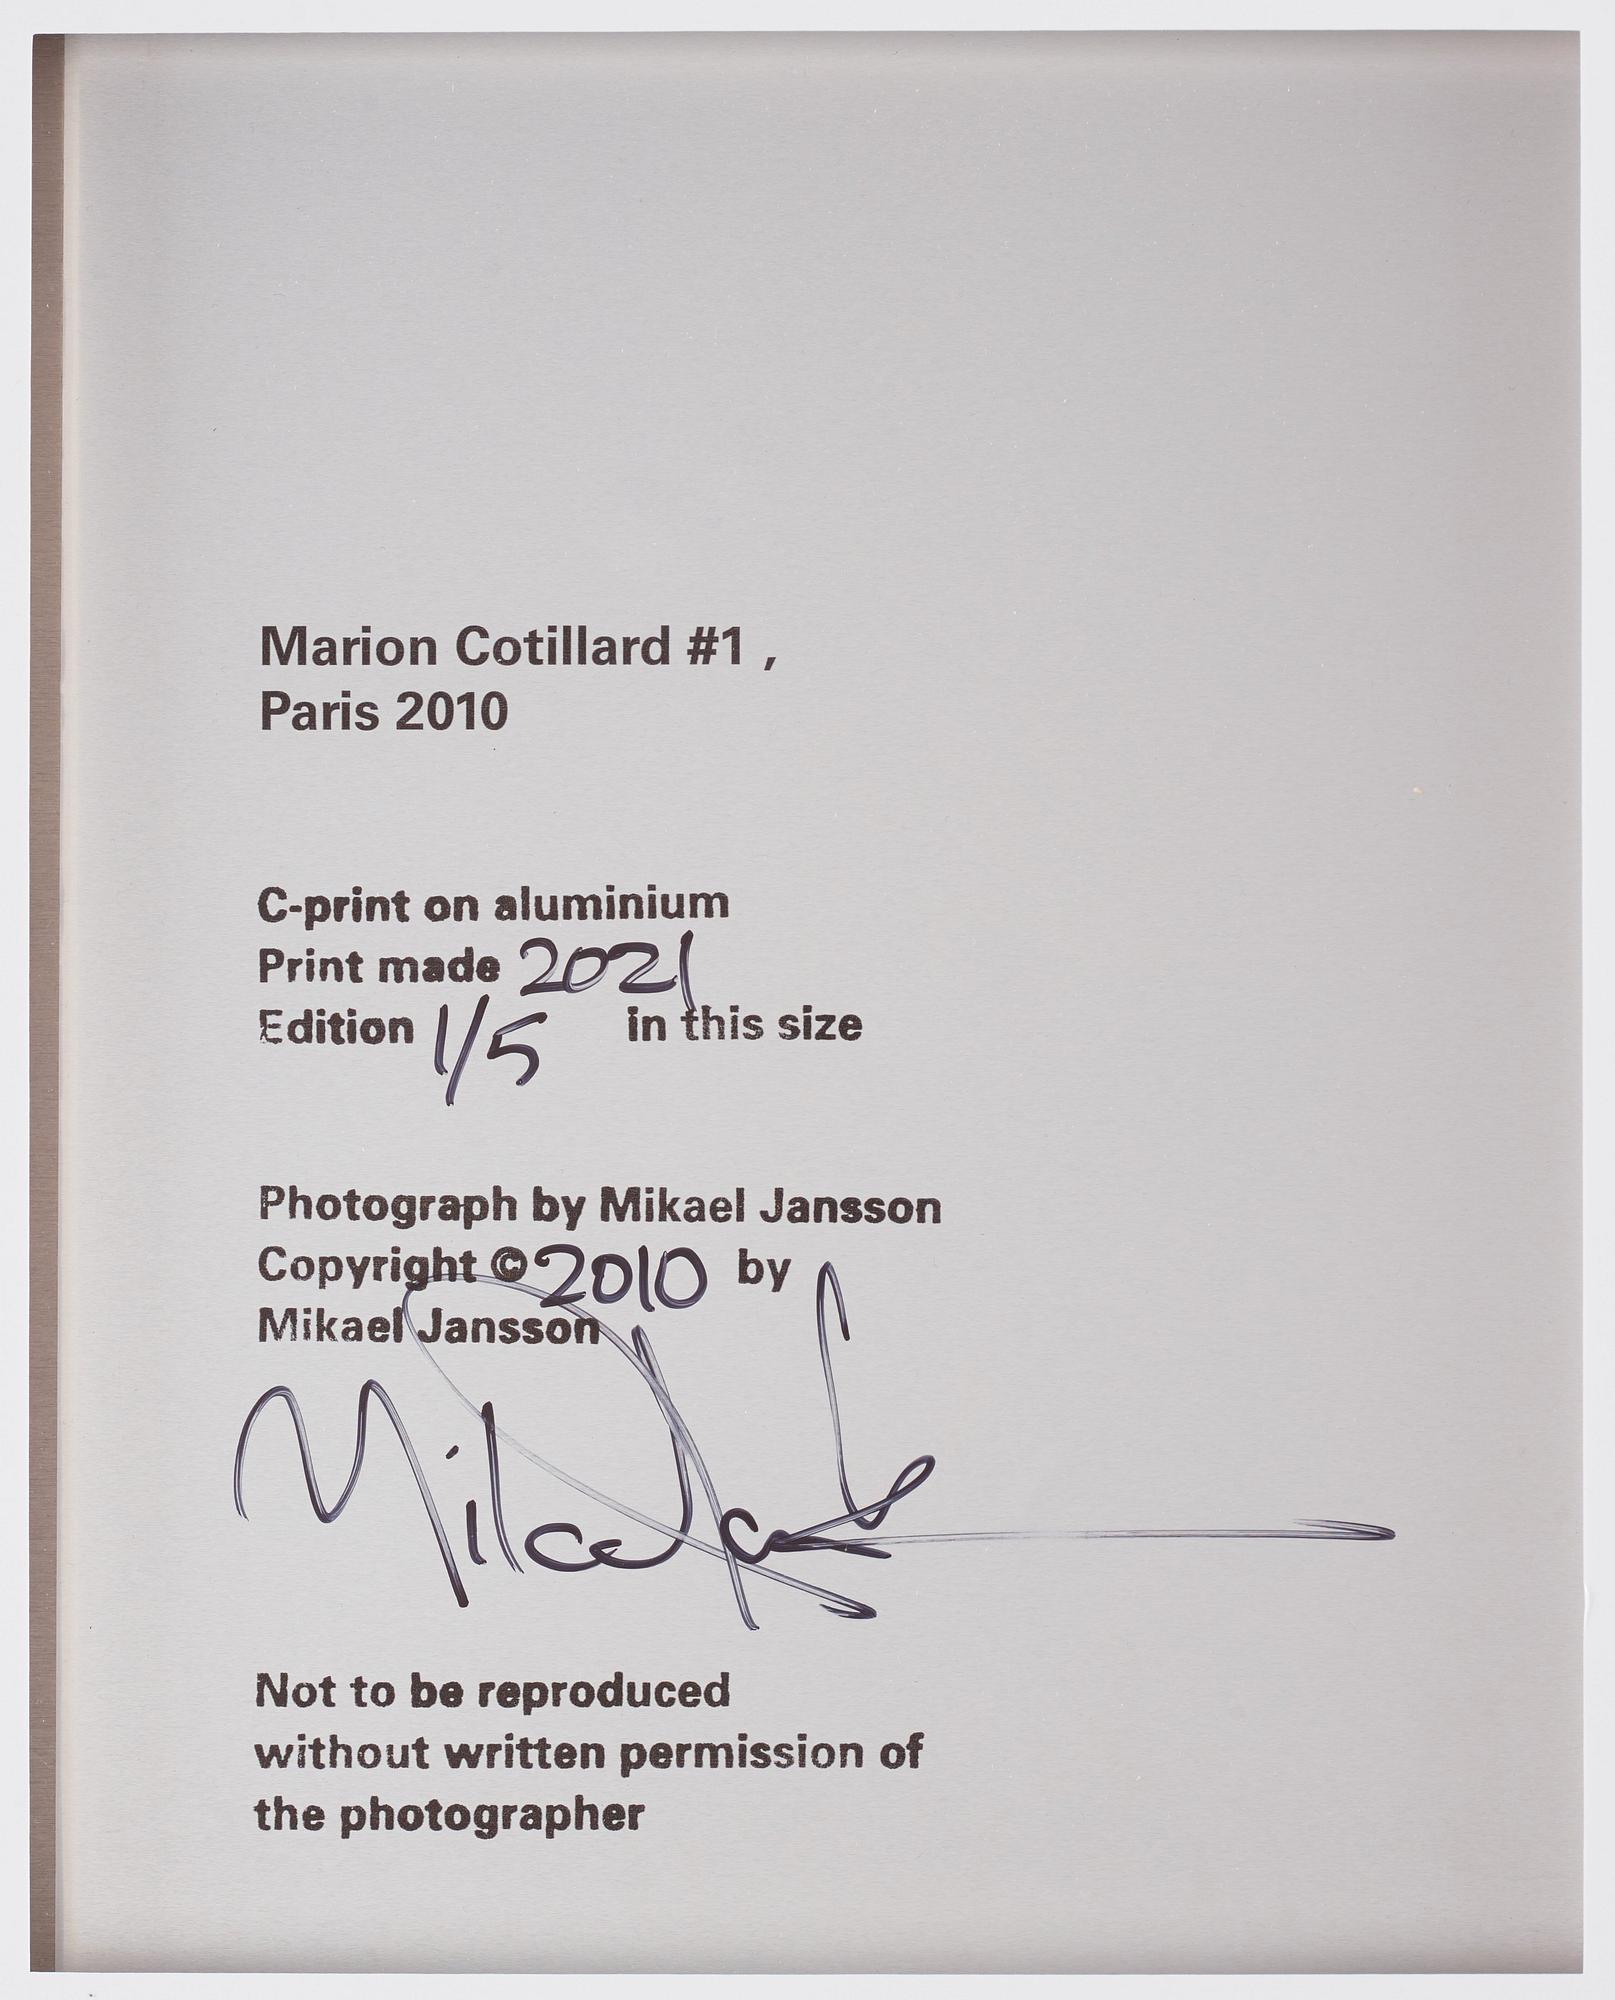 Marion Cotillard #1 ,
Paris 2010
C-print on aluminium
Print made 2021
Edition 1/5 in this size
Photograph by Mikael Jansson
Copyright © 2010 by
Mikael Jansson
Mikael Jansson
Not to be reproduced
without written permission of
the photographer